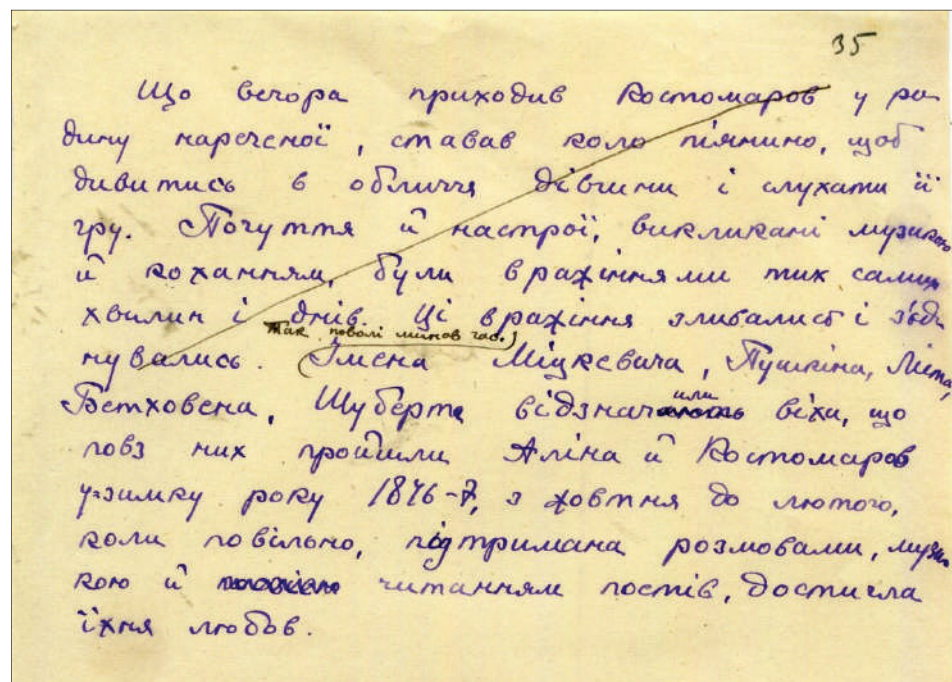 35
Що вечора приходив Костомаров у ро
дину нареченої, ставав коло піянино, щоб
дивитись в обличчя дівчини і слухати її
гру. Почуття й настрої, викликані музикою
й коханням, були вражіннями тих самих
хвилин і днів. Ці вражіння зливались і з'єд
Так поволі минав час.
нувались. Імена Міцкевича, Пушкіна, Ліста,
Бетховена, Шуберта відзначили віхи, що
повз них пройшли Аліна й Костомаров
узимку року 1846-7, з жовтня до лютого,
коли повільно, підтримана розмовами, музи
кою й читанням поетів, достигла
їхня любов.